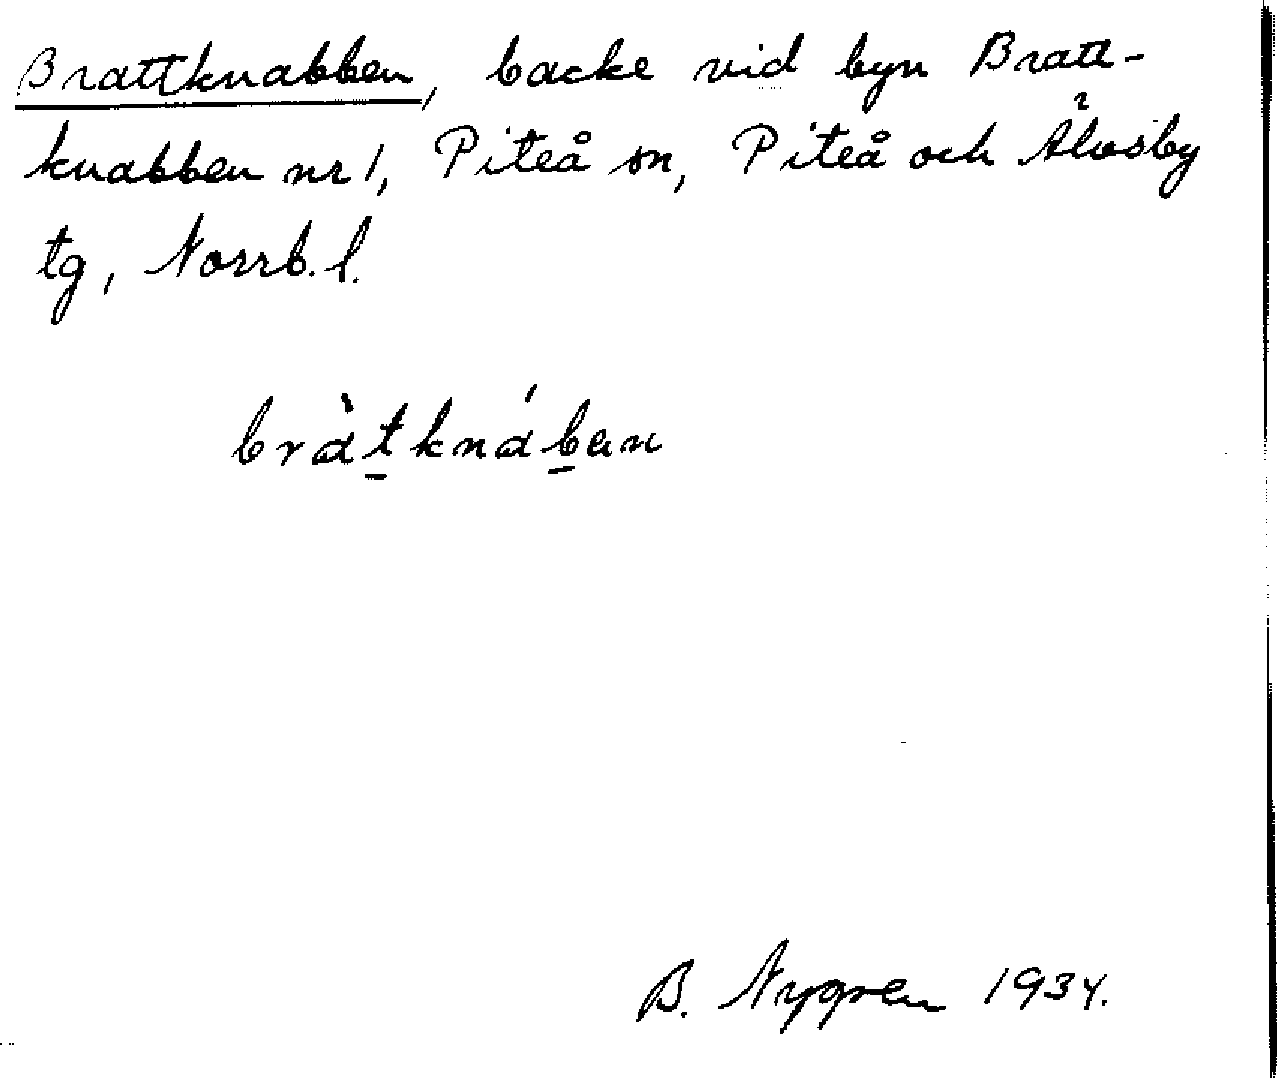 Brattknabben, backe vid byn Bratt-
knabben nr 1, Piteå sn, Piteå och Älvsby
tg, Norrb. l.
bràt̲knáb̲en
B. Nygren 1934.